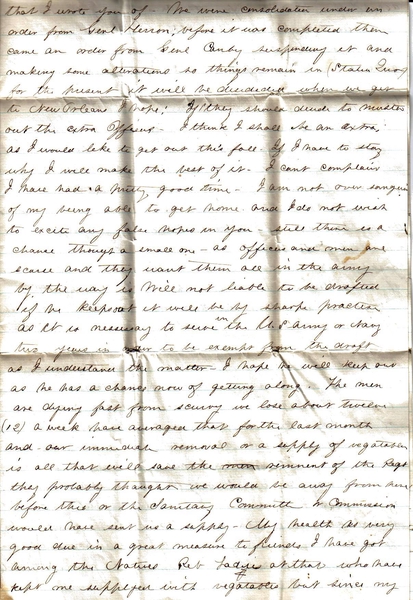 that I wrote you of - We were consolidated under an
order from Genl Herron; before it was completed then
came an order from Genl Canby suspending it and
making some alterations so things remain in (Status Quo)
for the present it will be dicided when we get
to New Orleans I hope! If they should dicide to muster
out the extra Officers - I think I shall be an extra
as I would like to get out this fall. If I have to stay
why I will make the best of it. I cant complain
I have had a pretty good time - I am not over sanguine
of my being able to get home and I do not wish
to excite any false hopes in you still there is a
chance though a small one - as Officers and men are
scarse and they want them all in the army
by the way is Will not liable to be drafted
if he keeps out it will be by sharpe practice
as it is necessary to serve in the U.S army or Navy
two years in order to be exempt from the draft
as I understand the matter - I hope he will keep out
as he has a chance now of getting along. The men
are dying fast from scurvy we lose about twelve
(12) a week have averaged that for the last month
and our immediate removal or a supply of vegatables
is all that will save the remnent of the Regt
they probably thought we would be away from here
before this or the Sanitary Committe or Commission
would have sent us a supply - My health is very
good due in a great measure to friends I have got
among the Natives Reb Ladies at that who have
kept me supplyed with vegatables but since my